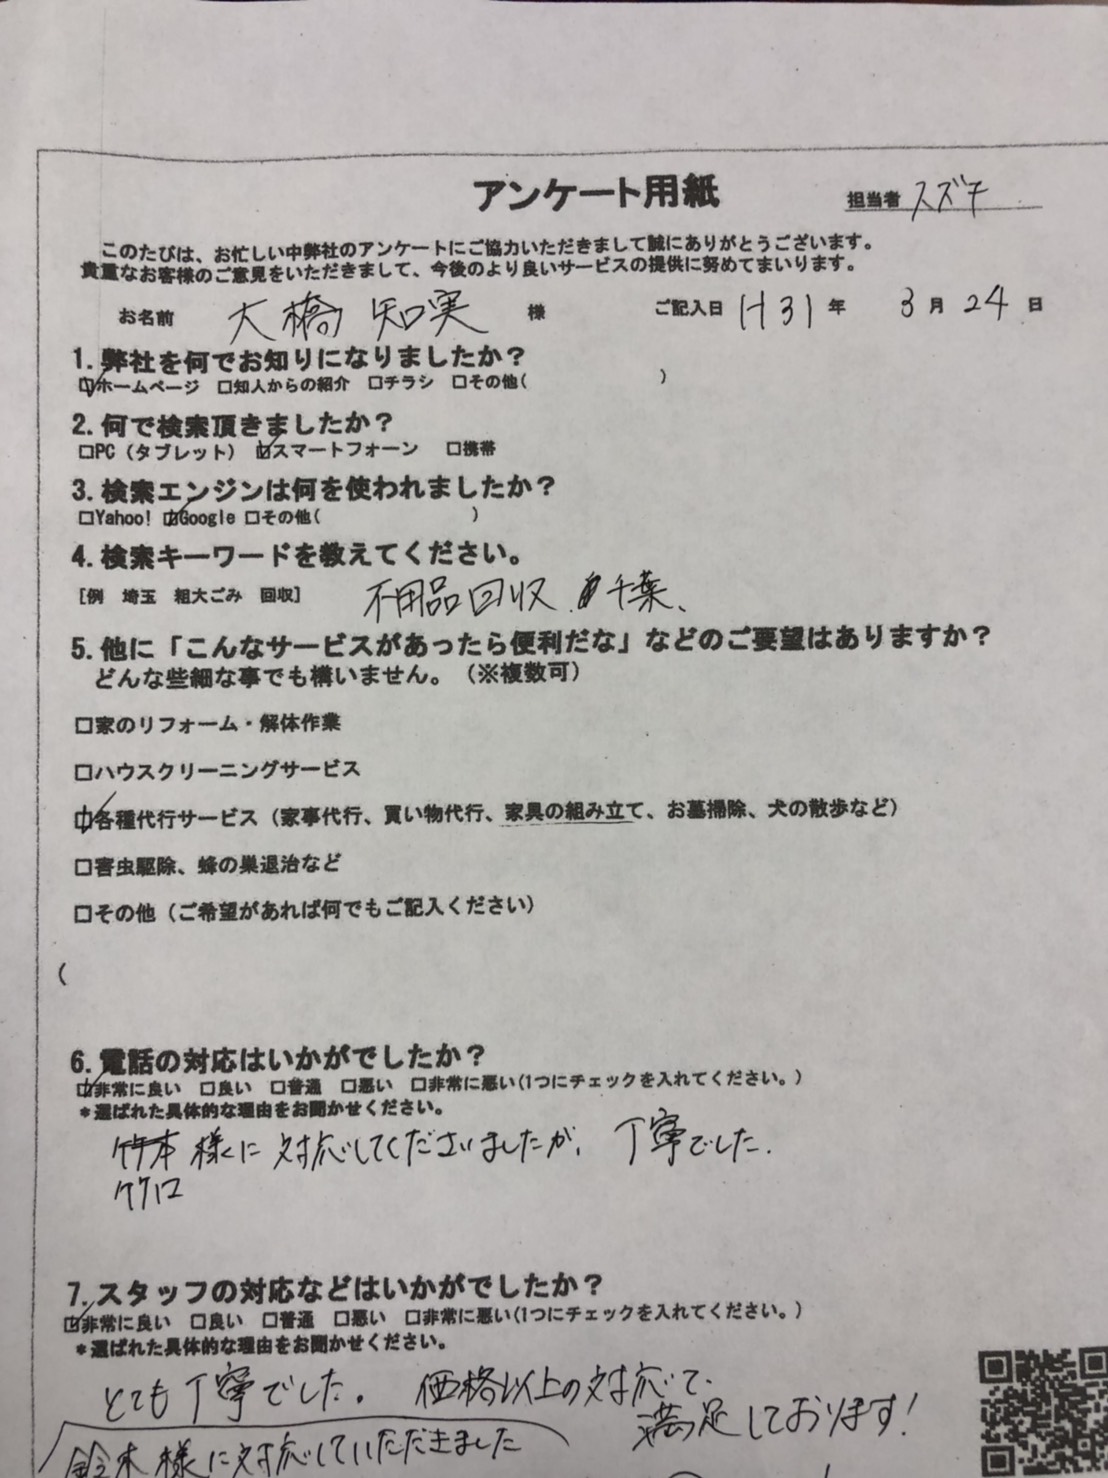 アンケート用紙 担当者 スズキ
このたびは、お忙しい中弊社のアンケートにご協力いただきまして誠にありがとうございます。
貴重なお客様のご意見をいただきまして、今後のより良いサービスの提供に努めてまいります。
お名前 大橋 知実 様 ご記入日 H31 年 3 月 24 日
1. 弊社を何でお知りになりましたか？
☑ホームページ □知人からの紹介 □チラシ □その他( )
2. 何で検索頂きましたか？
□PC（タブレット） ☑スマートフォーン □携帯
3. 検索エンジンは何を使われましたか？
□Yahoo! ☑Google □その他( )
4. 検索キーワードを教えてください。
[例 埼玉 粗大ごみ 回収] 不用品回収 千葉、
5. 他に「こんなサービスがあったら便利だな」などのご要望はありますか？
どんな些細な事でも構いません。（※複数可）
□家のリフォーム・解体作業
□ハウスクリーニングサービス
☑各種代行サービス（家事代行、買い物代行、家具の組み立て、お墓掃除、犬の散歩など）
□害虫駆除、蜂の巣退治など
□その他（ご希望があれば何でもご記入ください）
(
6. 電話の対応はいかがでしたか？
☑非常に良い □良い □普通 □悪い □非常に悪い(1つにチェックを入れてください。)
*選ばれた具体的な理由をお聞かせください。
様に対応してくださいましたが、丁寧でした.
7. スタッフの対応などはいかがでしたか？
☑非常に良い □良い □普通 □悪い □非常に悪い(1つにチェックを入れてください。)
*選ばれた具体的な理由をお聞かせください。
とても丁寧でした。価格以上の対応で、
満足しております！
鈴木様に対応していただきました